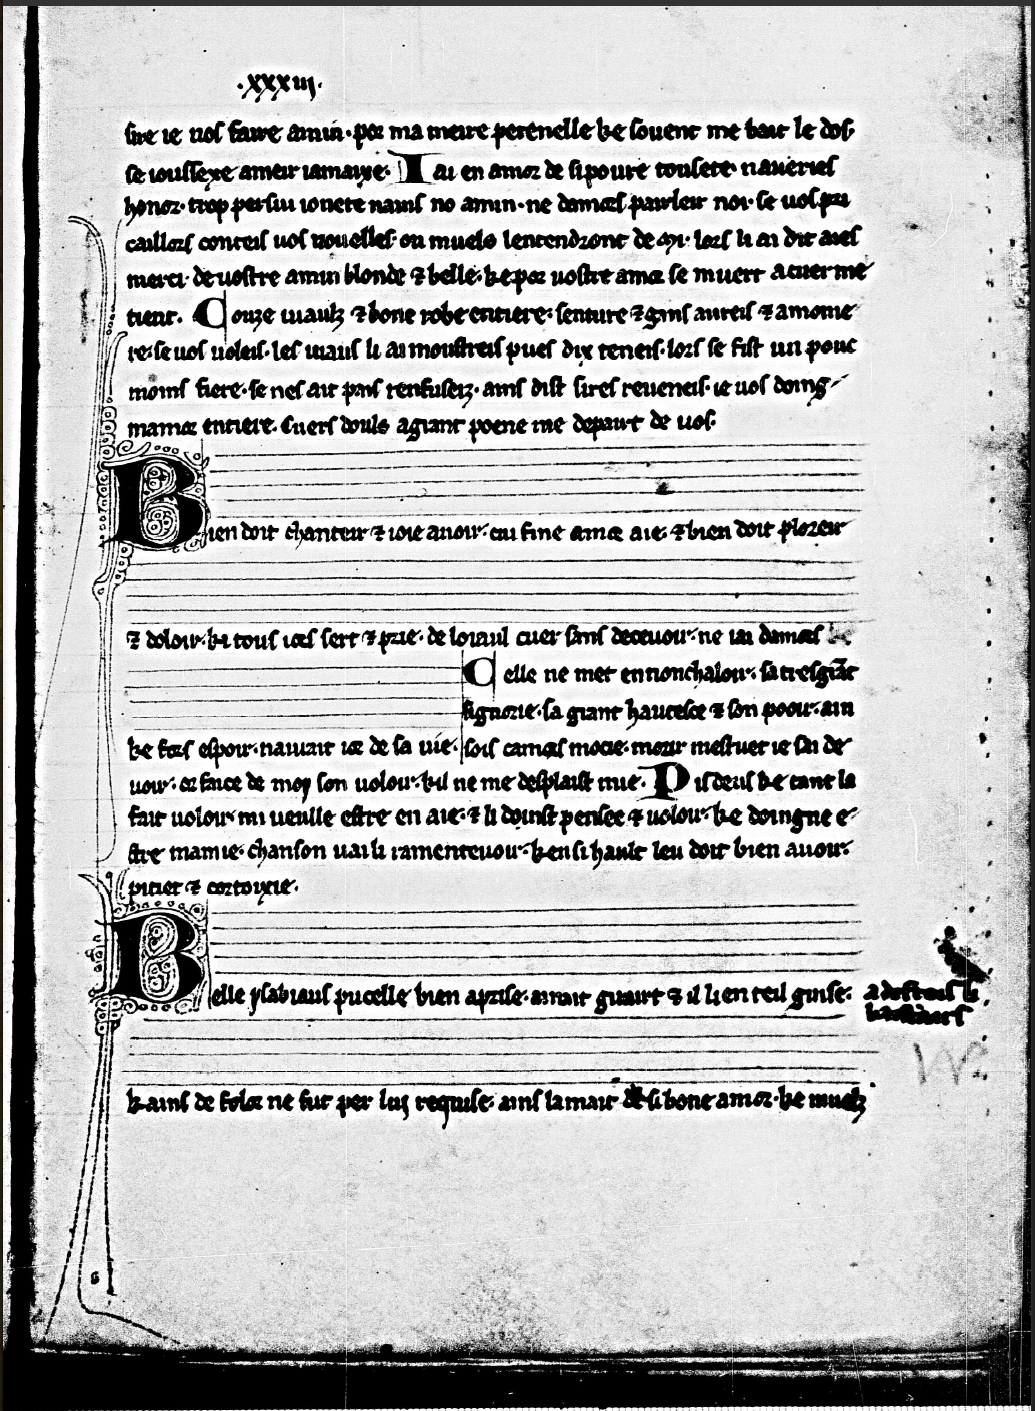 .xxxiij.
sire ie uos faire amin. por ma meire perenelle ke souent me bait le dos.
se iousexe ameir iamaixe. Iai en amor de si poure tousete. naueries
honor. trop per sui ionete nains no amin. ne damors parleir noi. se uos pra
caillors conteis uos nouelles. on muels lentendront de mi. lors li ai dit aies
merci. de uostre amin blonde & belle. ke por uostre amor se muert a cuer me
tient. Couze uaulz & bone robe entiere. senture & gans aureis & amonie
re. se uos uoleis. les uiaus li ai moustreis pues dix teneis. lors se fist un pouc
moins fiere. se nes ait pais renfuseiz. ains dist sires reueneis. ie uos doing
mamor entiere. Cuers douls a grant poene me depairt de uos.
Bien doit chanteir & ioie auoir. cui fine amor aie. & bien doit ploreir
& doloir. ki tous iors sert & prie. de loiaul cuer sans deceuoir. ne iai damors
Celle ne met en nonchaloir. sa tresgrāt
signorie. sa grant hautesce & son pooir. ain
ke fors espoir. naurait ior de sa uie. sois camors mocie. morir mestuet ie sai de
uoir. or faice de moy son uoloir. kil ne me desplaist mie. Pis deus ke tant la
fait uoloir mi ueulle estre en aie. & li doinst pensee & uoloir. ke doingne e
stre mamie. chanson uai li ramenteuoir. ken si hault leu doit bien auoir.
pitiet & cortoixie.
Belle ysabiaus pucelle bien aprise. amait guairt & il li en teil guise. a
kains de folor ne fut per luy requise. ains lamait de si bone amor. ke muelz